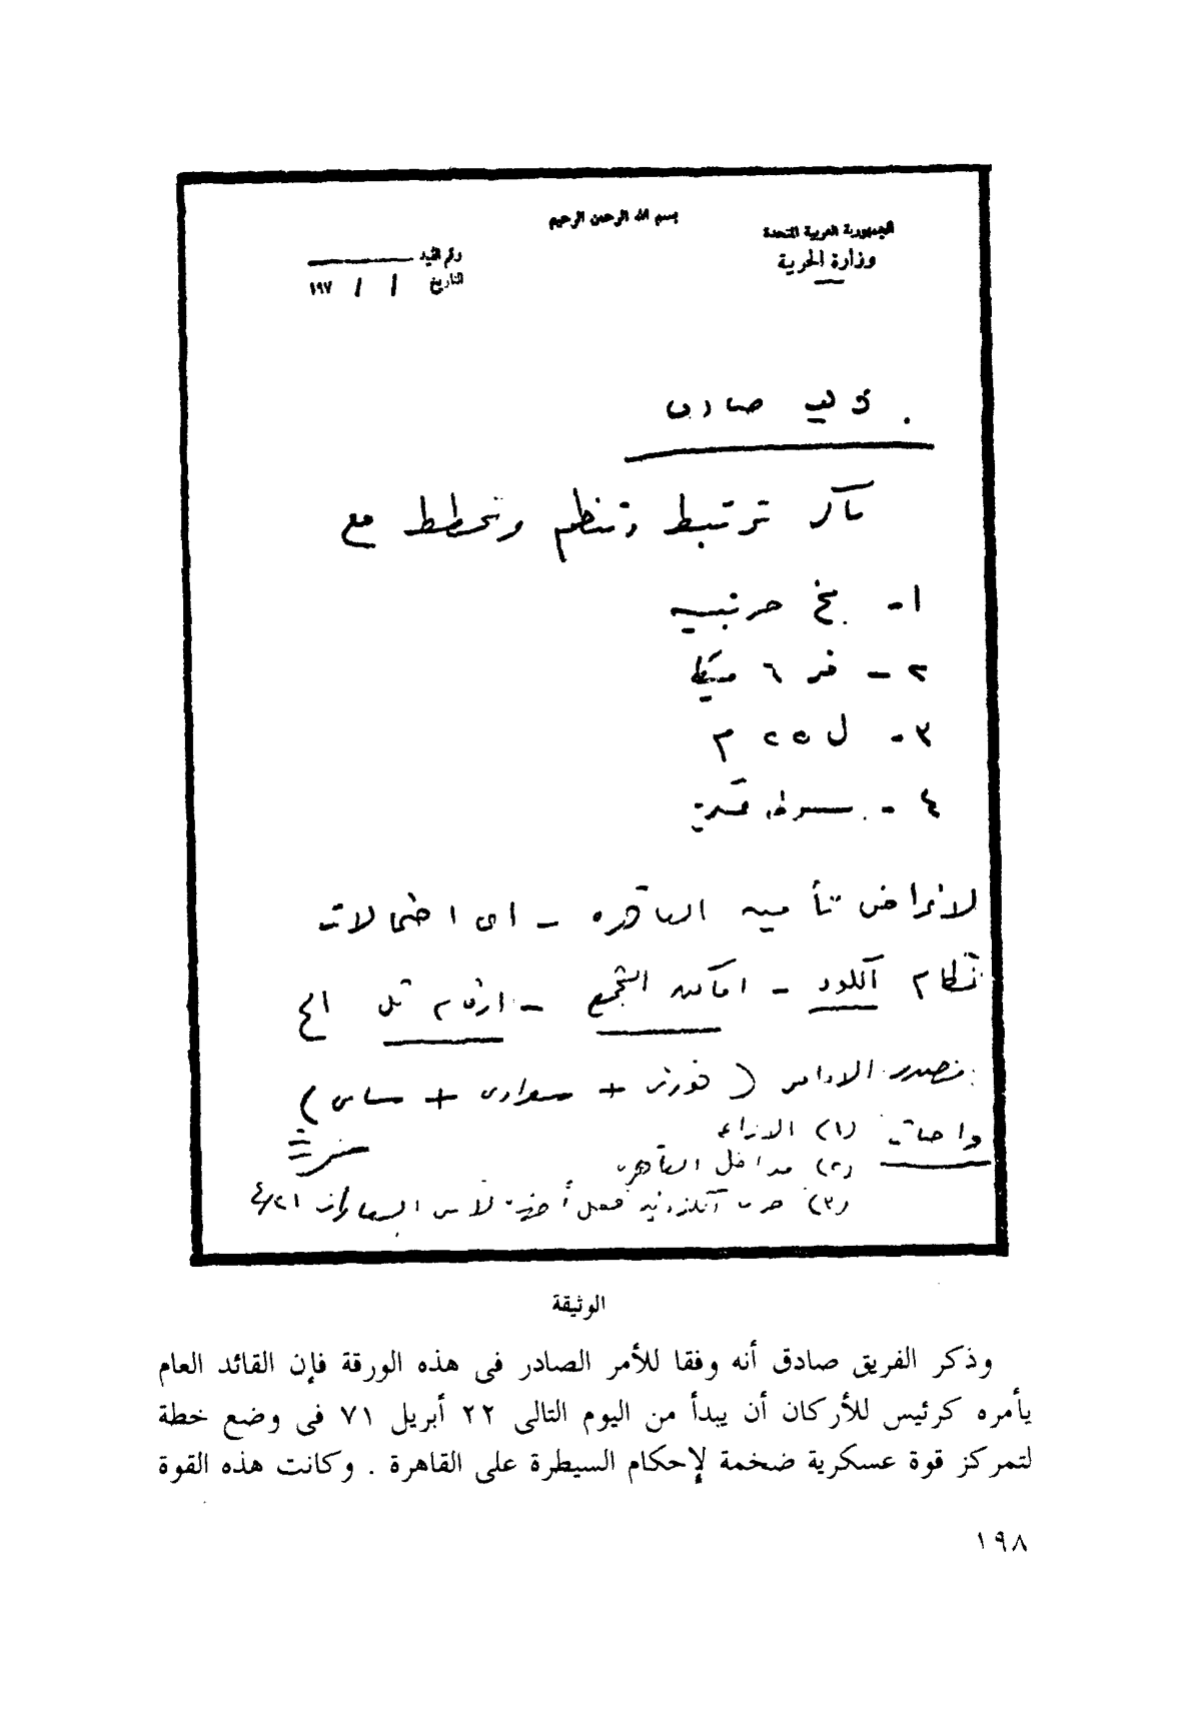 بسم الله الرحمن الرحيم
الجمهورية العربية المتحدة
وزارة الحربية
رقم القيد
التاريخ / / ١٩٧
صادق
باكر ترتبط وتنظم وتخطط مع
١ -
٢ - فر ٦ ميكا
٣ - ل ٢٥ م
٤ -
لاغراض تأمين القاهره - اى احتمالات
نظام الكود - اماكن التجمع - ارقام تل الخ
تصدر الاوامر ( فوزى + + سامى )
واجبات (١) الاذاعه
(٢) مداخل القاهره
(٣)
الوثيقة
وذكر الفريق صادق أنه وفقا للأمر الصادر فى هذه الورقة فإن القائد العام
يأمره كرئيس للأركان أن يبدأ من اليوم التالى ٢٢ أبريل ٧١ فى وضع خطة
لتمركز قوة عسكرية ضخمة لإحكام السيطرة على القاهرة . وكانت هذه القوة
١٩٨